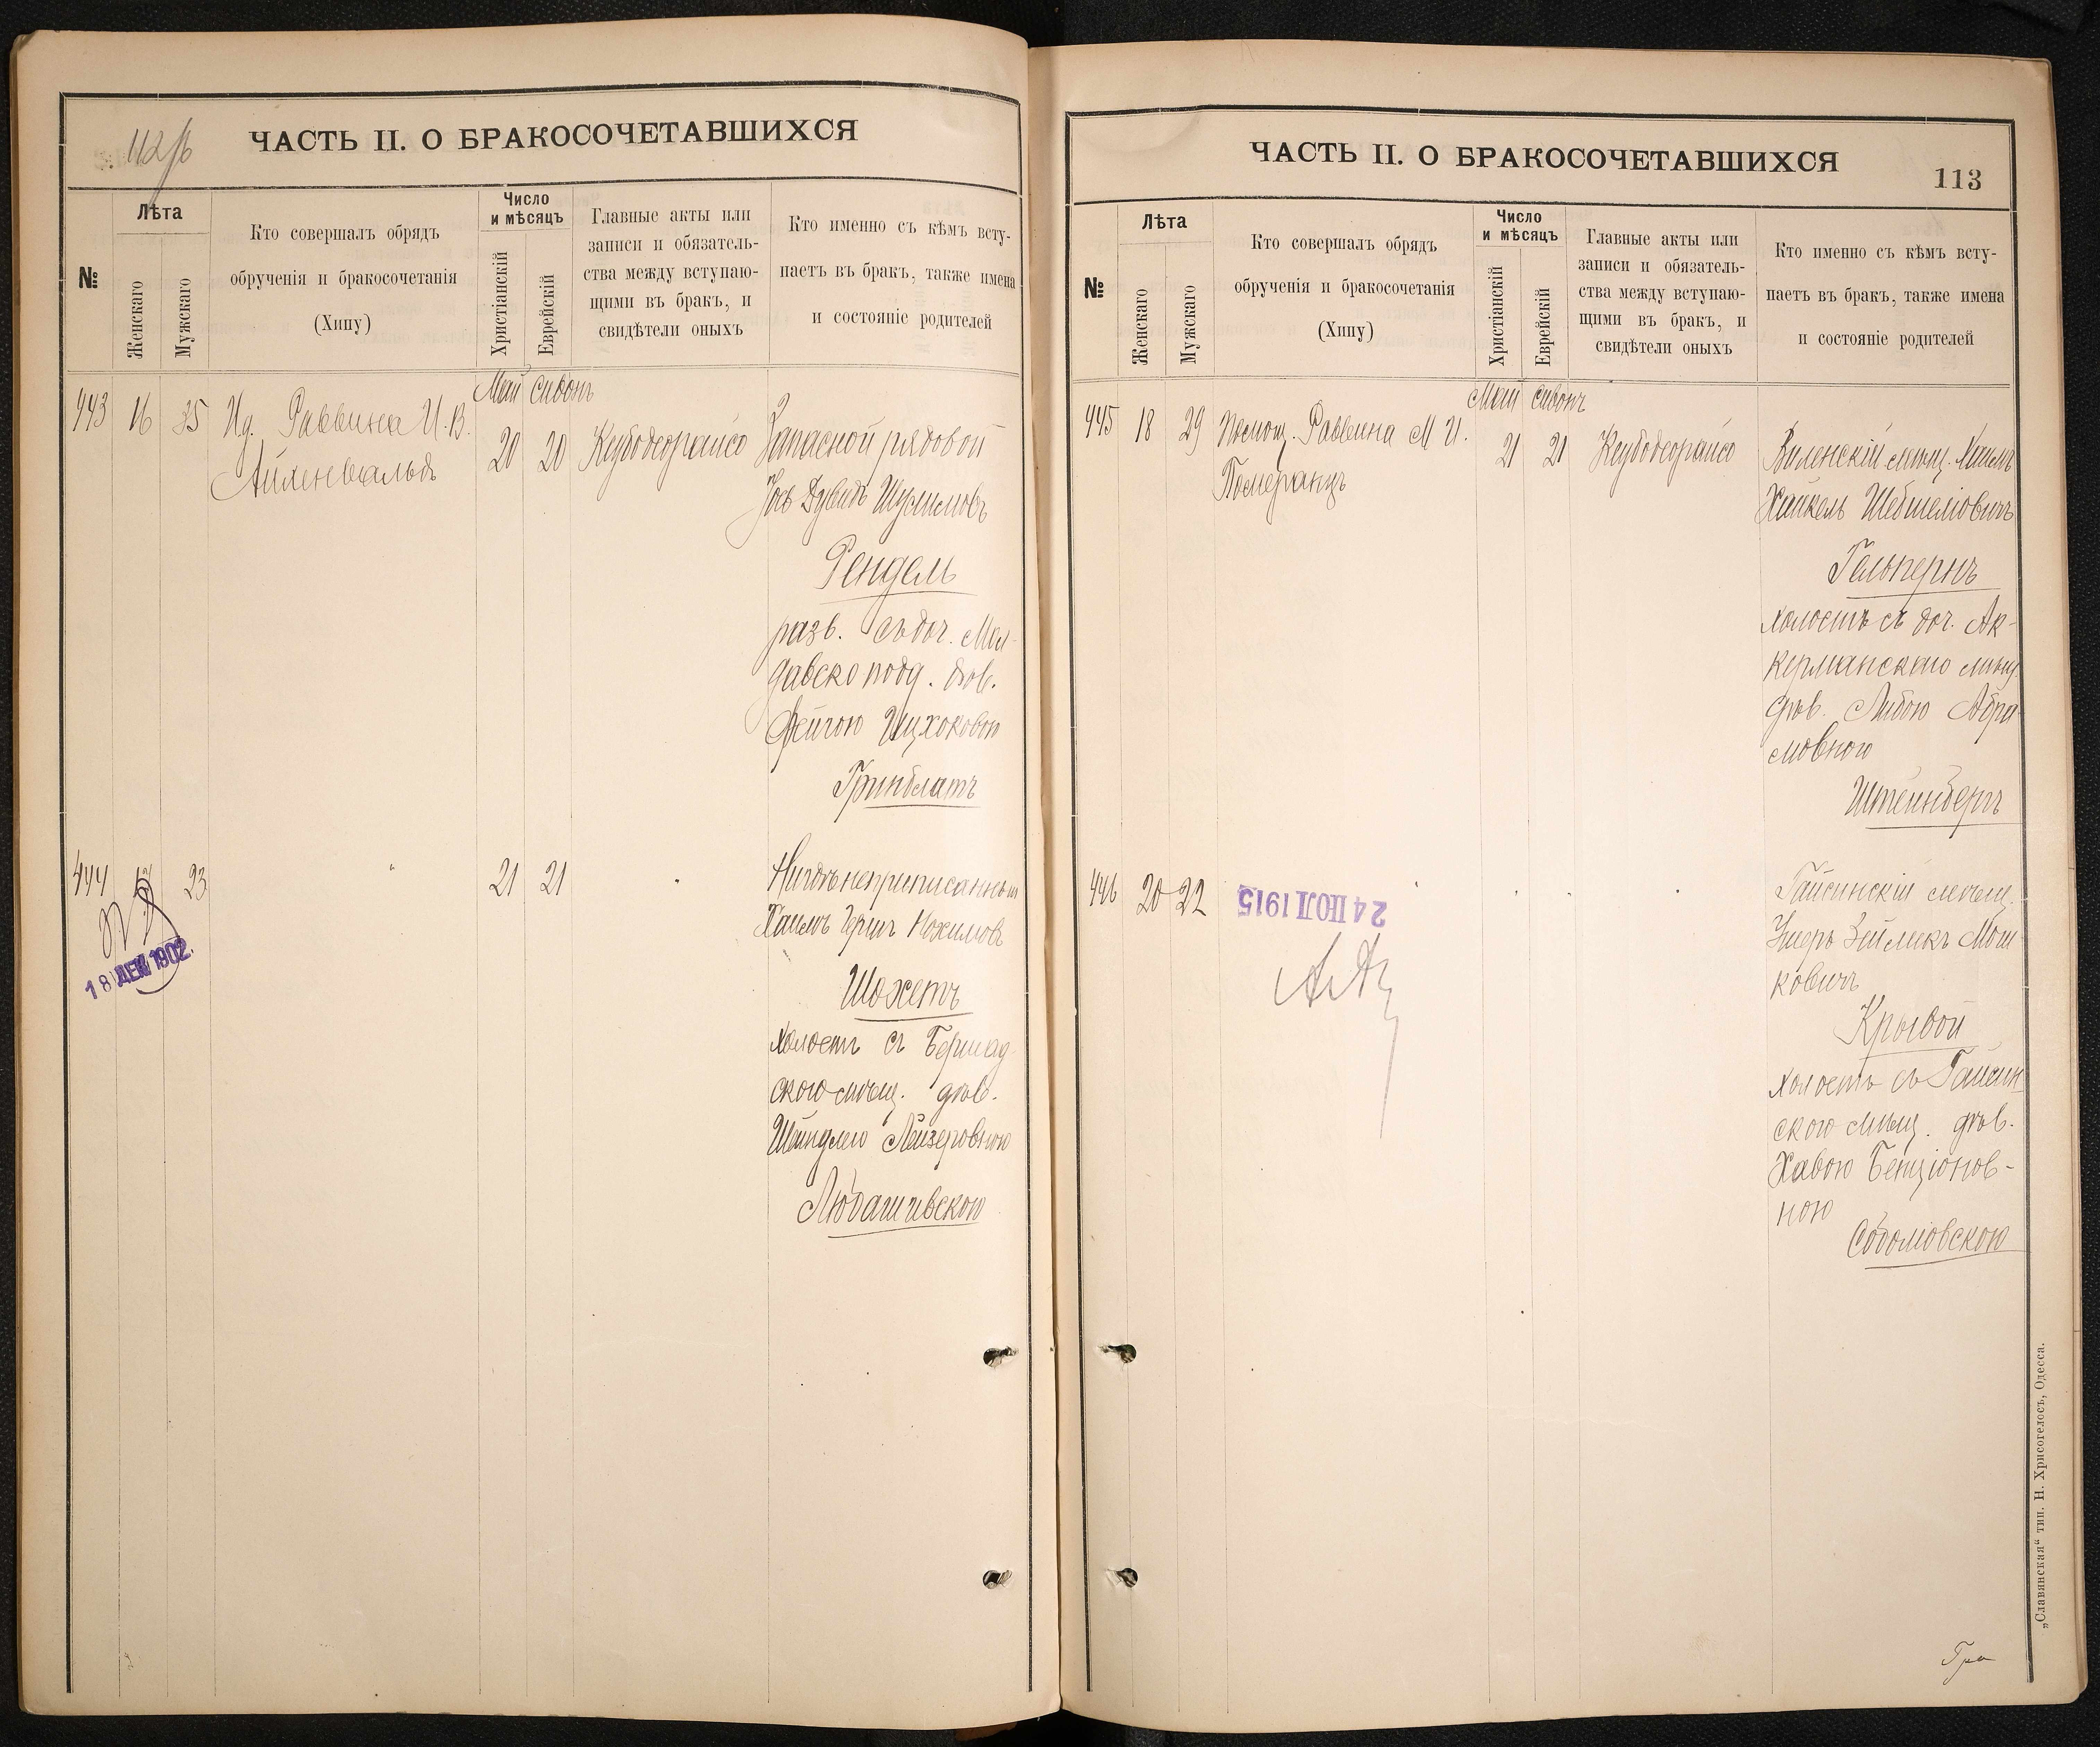 112 об
ЧАСТЬ II. О БРАКОСОЧЕТАВШИХСЯ
№
Лѣта
Женскаго
Мужскаго
Кто совершалъ обрядъ
обрученія и бракосочетанія
(Хипу)
Число
и мѣсяцъ
Христіанскій
Еврейскій
Главные акты или
записи и обязатель-
ства между вступаю-
щими въ бракъ, и
свидѣтели оныхъ
Кто именно съ кѣмъ всту-
паетъ въ бракъ, также имена
и состояніе родителей
Май Сивонъ
443 16 35 Ид. Раввина И. В.
Айхенвальдъ
20 20 Кеубодеорайсо
Запасной рядовой
Іось Дувидъ Шулимовъ
Рендель
разв. съ доч. Мол-
давско подд. дѣв.
Фейгою Ицхоковою
Гринблатъ
444 23
21 21
Нигдѣ неприписанный
Хаимъ Гершъ Нохимовъ
Шохетъ
холостъ съ Бершад-
скою мѣщ. дѣв.
Шейндлею Лейзеровною
Любашевскою
18 ДЕК 1902.
ЧАСТЬ II. О БРАКОСОЧЕТАВШИХСЯ
113
№
Лѣта
Женскаго
Мужскаго
Кто совершалъ обрядъ
обрученія и бракосочетанія
(Хипу)
Число
и мѣсяцъ
Христіанскій
Еврейскій
Главные акты или
записи и обязатель-
ства между вступаю-
щими въ бракъ, и
свидѣтели оныхъ
Кто именно съ кѣмъ всту-
паетъ въ бракъ, также имена
и состояніе родителей
Май Сивонъ
445 18 29 Помощ. Раввина М И.
Померанцъ
21 21 Кеубодеорайсо
Виленскій мѣщ. Хаимъ
Хайкель Шебшеліовичъ
Гальпернъ
холостъ съ доч. Ак-
керманскаго мѣщ.
дѣв. Либою Абра-
мовною
Штейнбергъ
446 20 22
24 ІЮЛ 1915
Гайсинскій мѣщ.
Ушеръ Зейликъ Мош
ковичъ
Крывой
холостъ съ Гайсин
скою мѣщ. дѣв.
Хавою Бенціонов-
ною
Соболювскою
Гра
„Славянская“ тип. Н. Хрисогелосъ, Одесса.